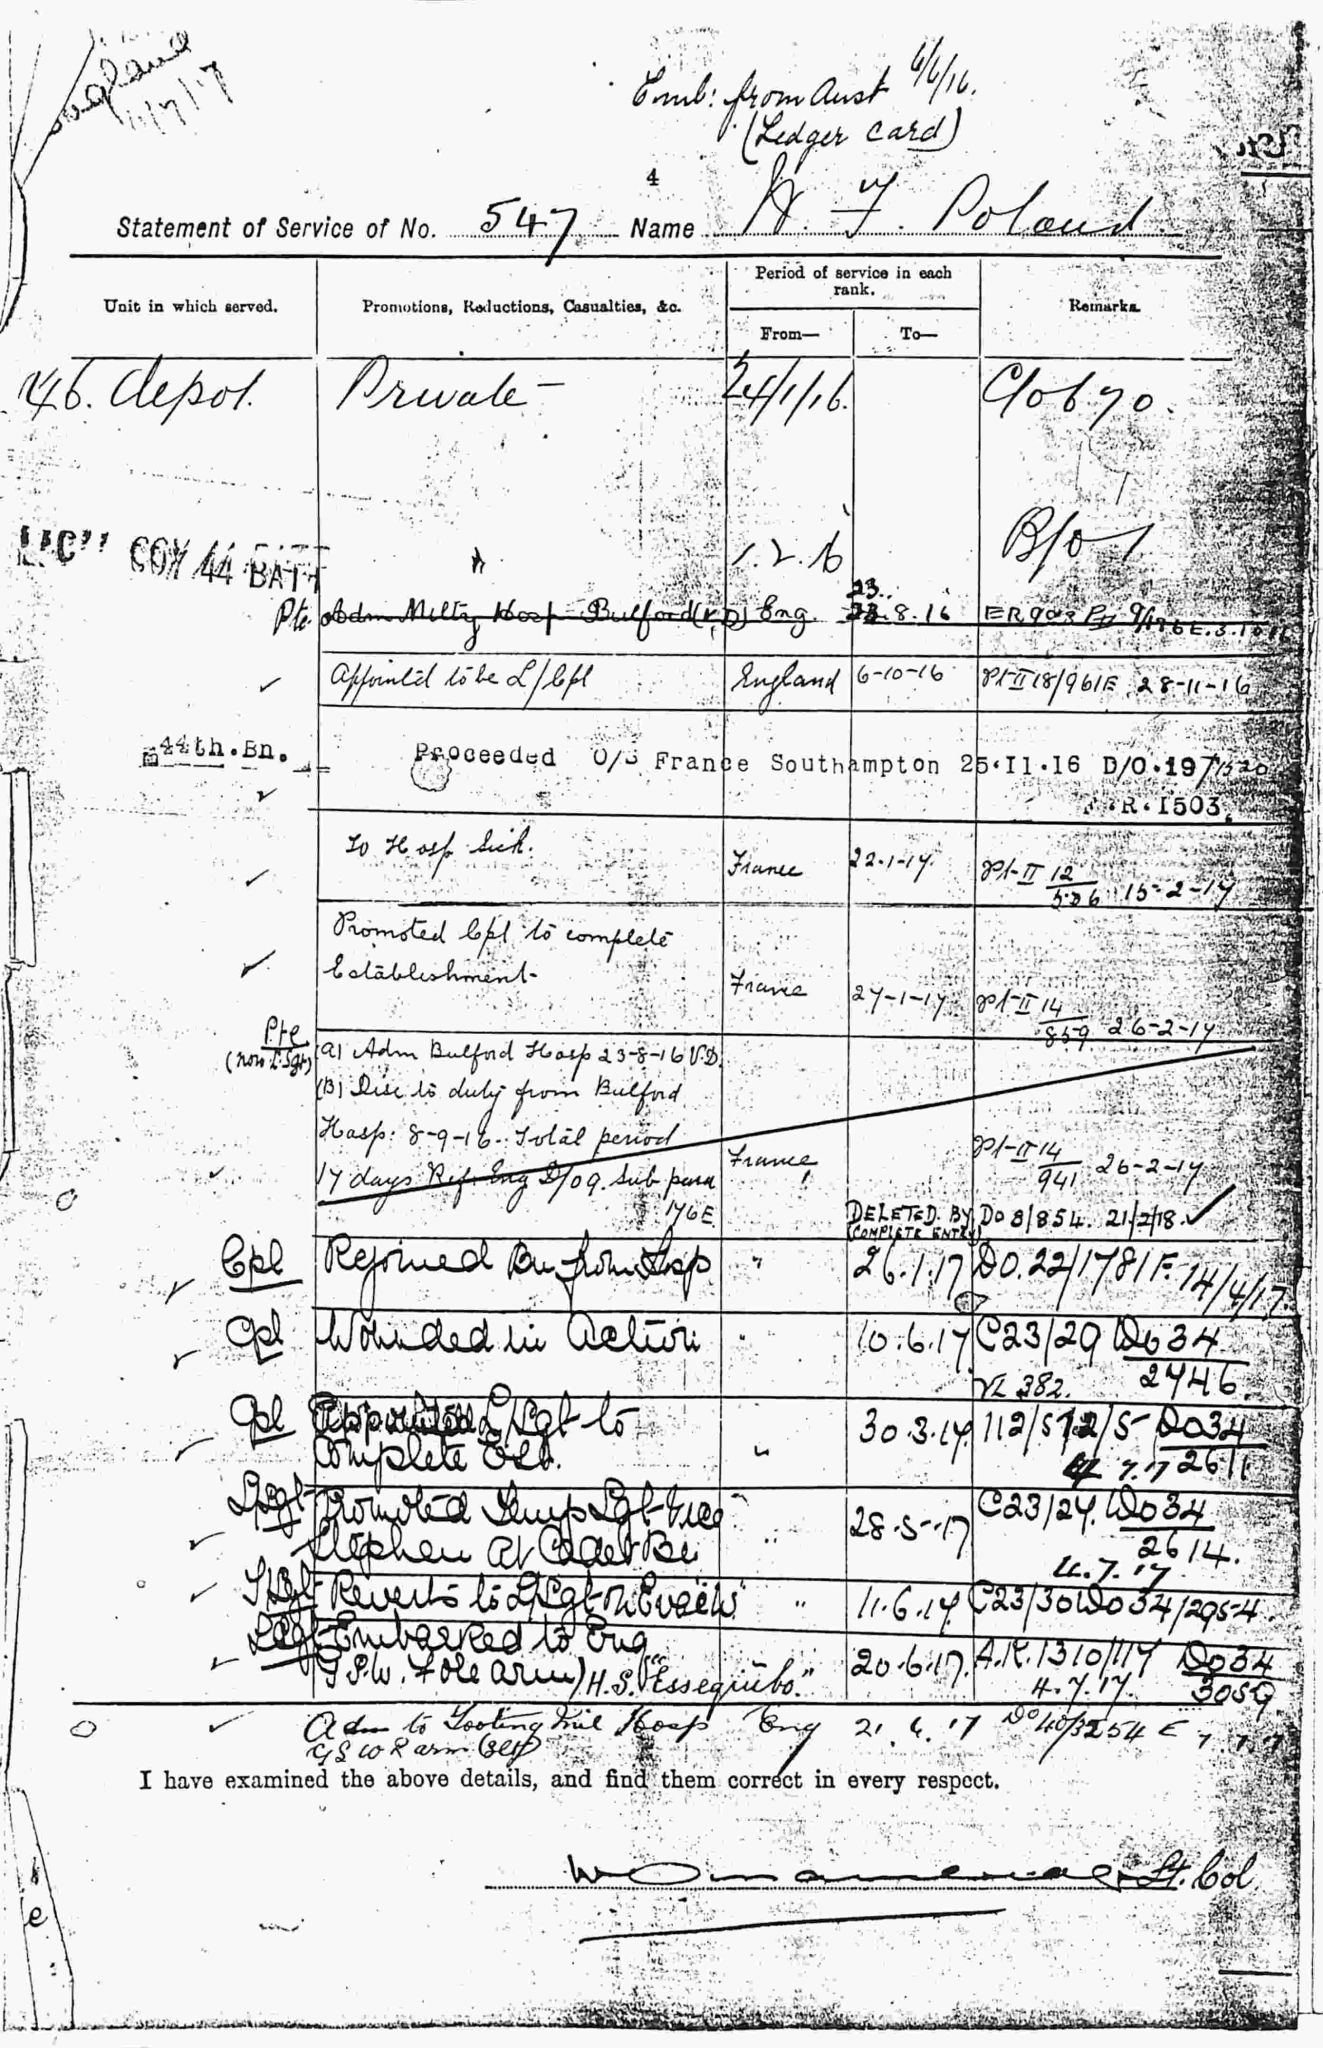 England
11/7/17
Emb: from Aust 6/6/16.
(Ledger card)
4
Statement of Service of No. 547 Name H. F. Poland
Unit in which served.
Promotions, Reductions, Casualties, &c.
Period of service in each rank.
From—
To—
Remarks.
depot. Private — 24/1/16.
"C" COY 44 BATT " 1.2.16
Pte Adm Milty Hosp Bulford (V.D) Eng. 23.8.16
Appoint'd to be L/Cpl England 6-10-16 Pt-II 18/961E 28-11-16
44th.Bn. Proceeded O/S France Southampton 25.II.16 D/O.19
R.I503.
To Hosp Sick. France 22-1-17 Pt-II 12/506 15-2-17
Promoted Cpl to complete
Establishment France 27-1-17 Pt-II 14/859 26-2-17
Pte
(now L.Sgt) (A) Adm Bulford Hosp 23-8-16 V.D.
(B) Disc to duty from Bulford
Hosp: 8-9-16. Total period
17 days Ref: Eng D/O 9. Sub para France, Pt-II 14/941 26-2-17
176E. DELETED BY DO 8/854. 21/2/18.
(COMPLETE ENTRY)
Cpl Rejoined Bn from Hosp " 26.1.17 DO.22/1781F. 14/4/17.
Cpl Wounded in Action " 10.6.17 C23/29 DO34/2746.
382.
Cpl Appointed L/Sgt to " 30.3.17. 112/5 DO34/2611
Complete Est.
L/Sgt Promoted Temp Sgt vice " 28.5.17 C23/27. DO34/2614.
Stephen at Cadet Bn 4.7.17
T/Sgt Reverts to L/Sgt on Evac'n " 11.6.17 C23/30 DO34/2954.
L/Sgt Embarked to Eng 20.6.17. A.R.1310/117 DO34/3059
G.S.W. Fore arm) H.S. "Essequibo." 4.7.17.
Adm to Tooting Mil Hosp Eng 21.6.17 DO 40/3254 E 7.7.17
G S W R arm
I have examined the above details, and find them correct in every respect.
Lt. Col.